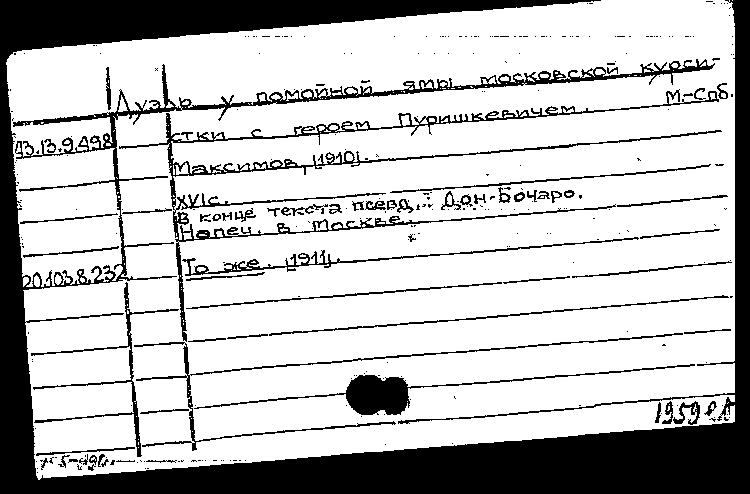 Дуэль у помойной ямы московской курси-
43.13.9.498 стки с героем Пуришкевичем. М.-Спб.
Максимов, [1910].
XVIс.
В конце текста псевд.: Дон-Бочаро.
Напеч. в Москве.
20.103.8.232 То же. [1911].
1959